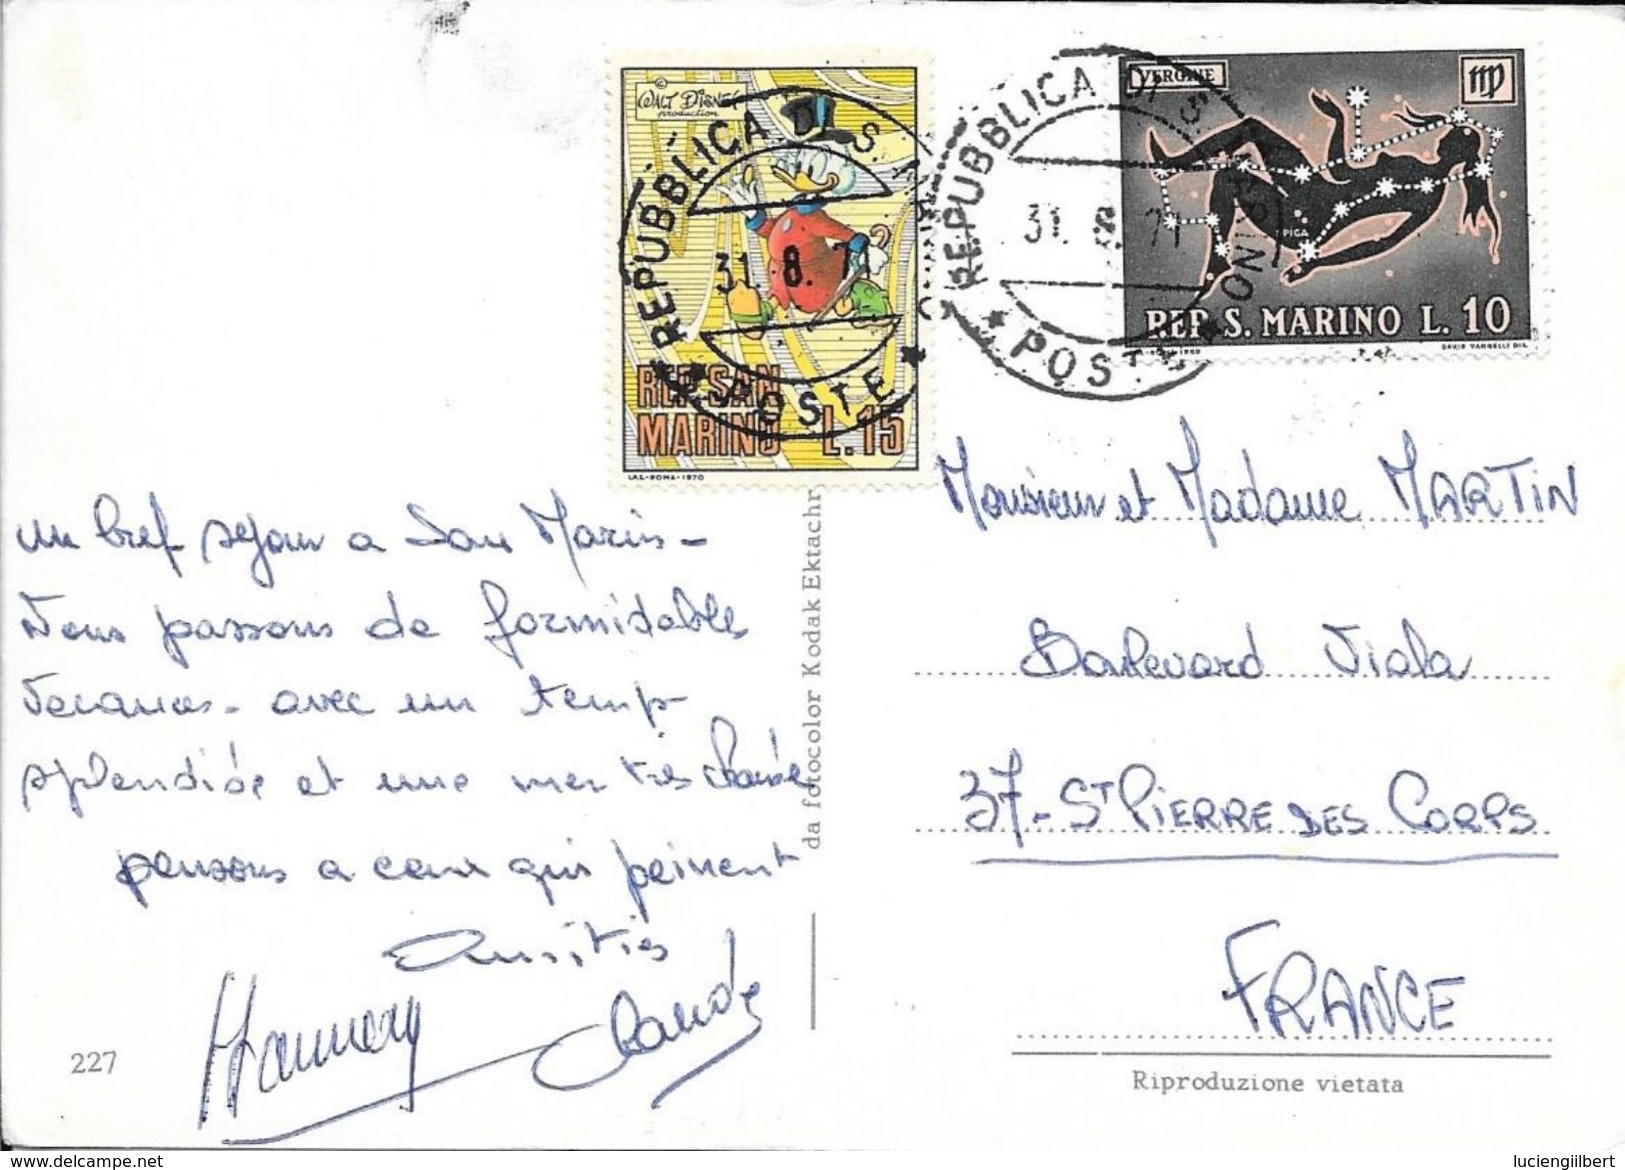 © WALT DISNEY
production
REPUBBLICA DI S. MARINO
31. 8. 71
POSTE
REP. SAN
MARINO L. 15
I.A.S.-ROMA-1970
VERGINE
SPICA
REP. S. MARINO L. 10
REPUBBLICA DI S. MARINO
31. 8. 71
POSTE
un bref séjour a San Marin -
Nous passons de formidables
vacances - avec un temps
splendide et une mer très chaude
pensons a ceux qui peinent
Amitiés
Claude
227
da fotocolor Kodak Ektachr
Monsieur et Madame MARTIN
Boulevard Viala
37 - ST PIERRE DES CORPS
FRANCE
Riproduzione vietata
www.delcampe.net
luciengilbert